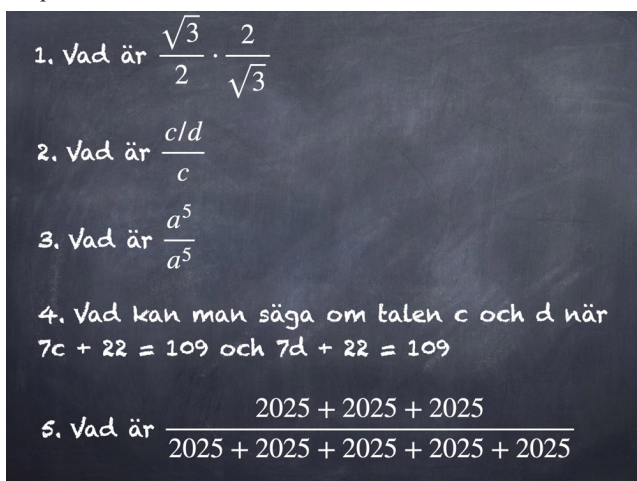 1. Vad är √3/2 · 2/√3
2. Vad är (c/d)/c
3. Vad är a⁵/a⁵
4. Vad kan man säga om talen c och d när
7c + 22 = 109 och 7d + 22 = 109
5. Vad är (2025 + 2025 + 2025)/(2025 + 2025 + 2025 + 2025 + 2025)